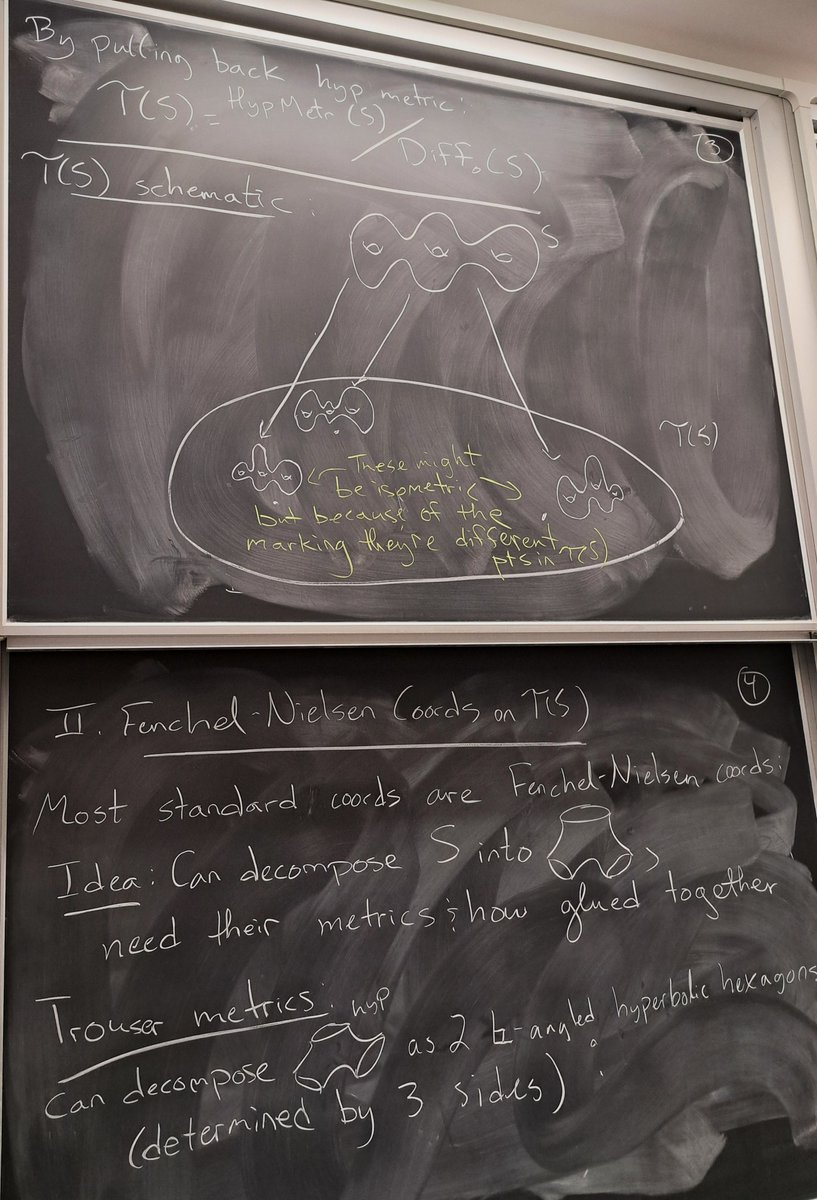 By pulling back hyp metric:
T(S) = HypMetr(S) / Diff₀(S)
③
T(S) schematic:
S
T(S)
These might
be isometric
but because of the
marking they're different
pts in T(S)
④
II. Fenchel-Nielsen Coords on T(S)
Most standard coords are Fenchel-Nielsen coords:
Idea: Can decompose S into ,
need their metrics & how glued together
Trouser metrics:
hyp
Can decompose as 2 ∟-angled hyperbolic hexagons
(determined by 3 sides) :